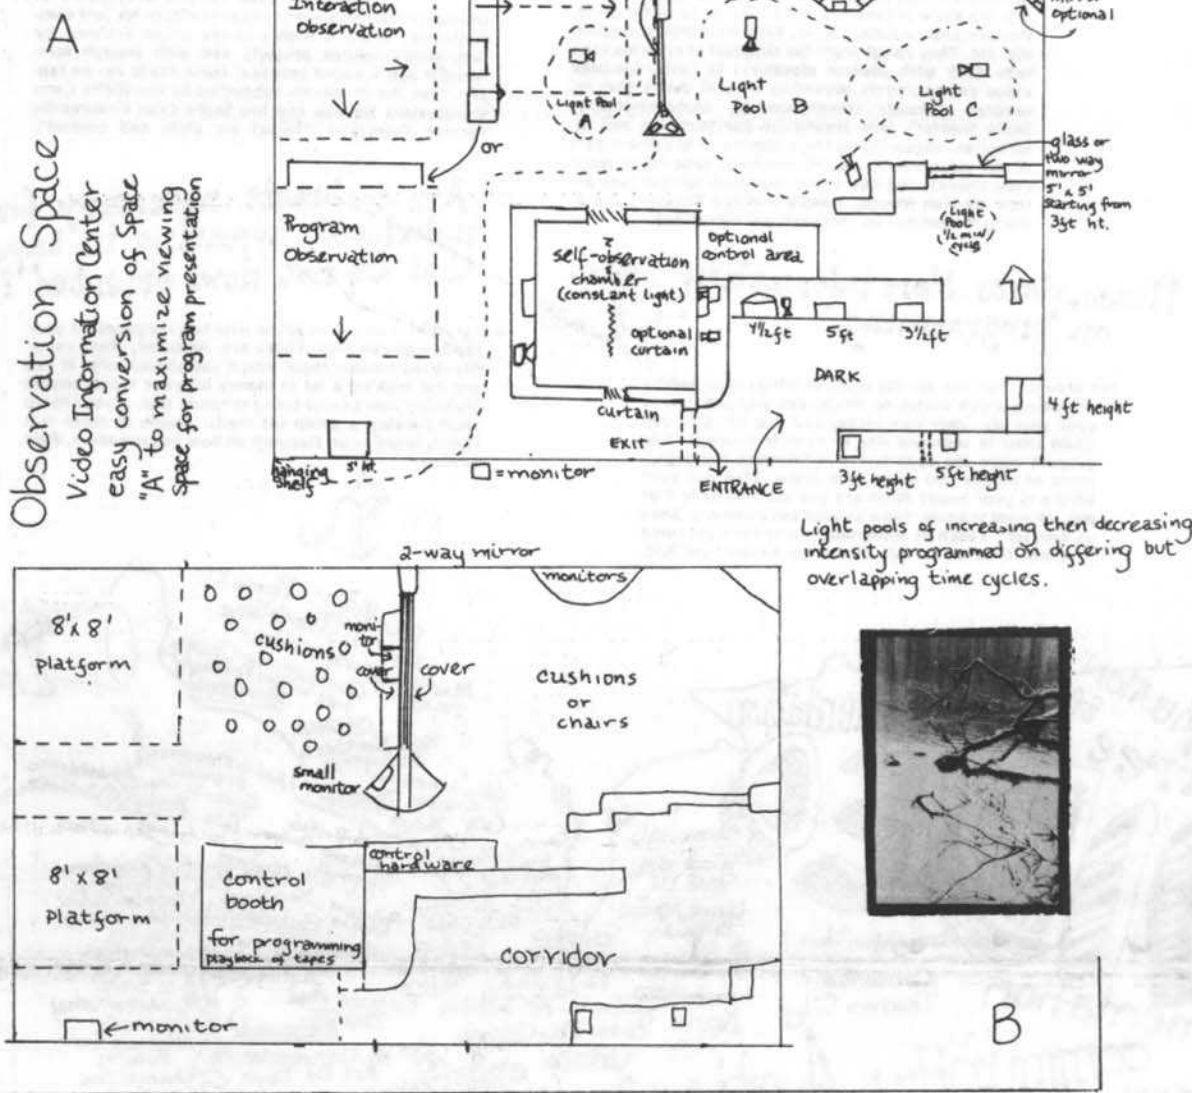 A
Observation Space
Video Information Center
easy conversion of Space
"A" to maximize viewing
Space for program presentation
Interaction
Observation
or
Program
Observation
hanging
shelf
5' ht.
Light Pool
A
Light
Pool B
Light
Pool C
optional
glass or
two way
mirror
5' x 5'
starting from
3ft ht.
Light
Pool
(1/2 min/
cycle)
self-observation
chamber
(constant light)
optional
control area
optional
curtain
4½ft
5ft
3½ft
DARK
4ft height
curtain
EXIT
ENTRANCE
3ft height
5ft height
=monitor
Light pools of increasing then decreasing
intensity programmed on differing but
overlapping time cycles.
2-way mirror
8' x 8'
platform
cushions
moni-
tor
cover
cover
small
monitor
monitors
cushions
or
chairs
8' x 8'
Platform
control
booth
for programming
playback of tapes
control
hardware
corridor
monitor
B